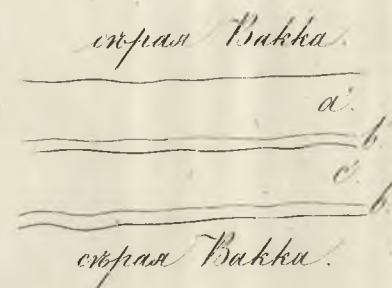 сѣрая Вакка.
a.
b.
c.
b.
сѣрая Вакка.